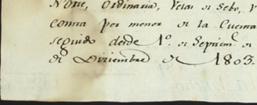 Norte, Ordinaria, Velas de Sebo, y
consta por menor de la Cuenta
seguida desde 1.º de Septiem.e
de Diciembre de 1803.